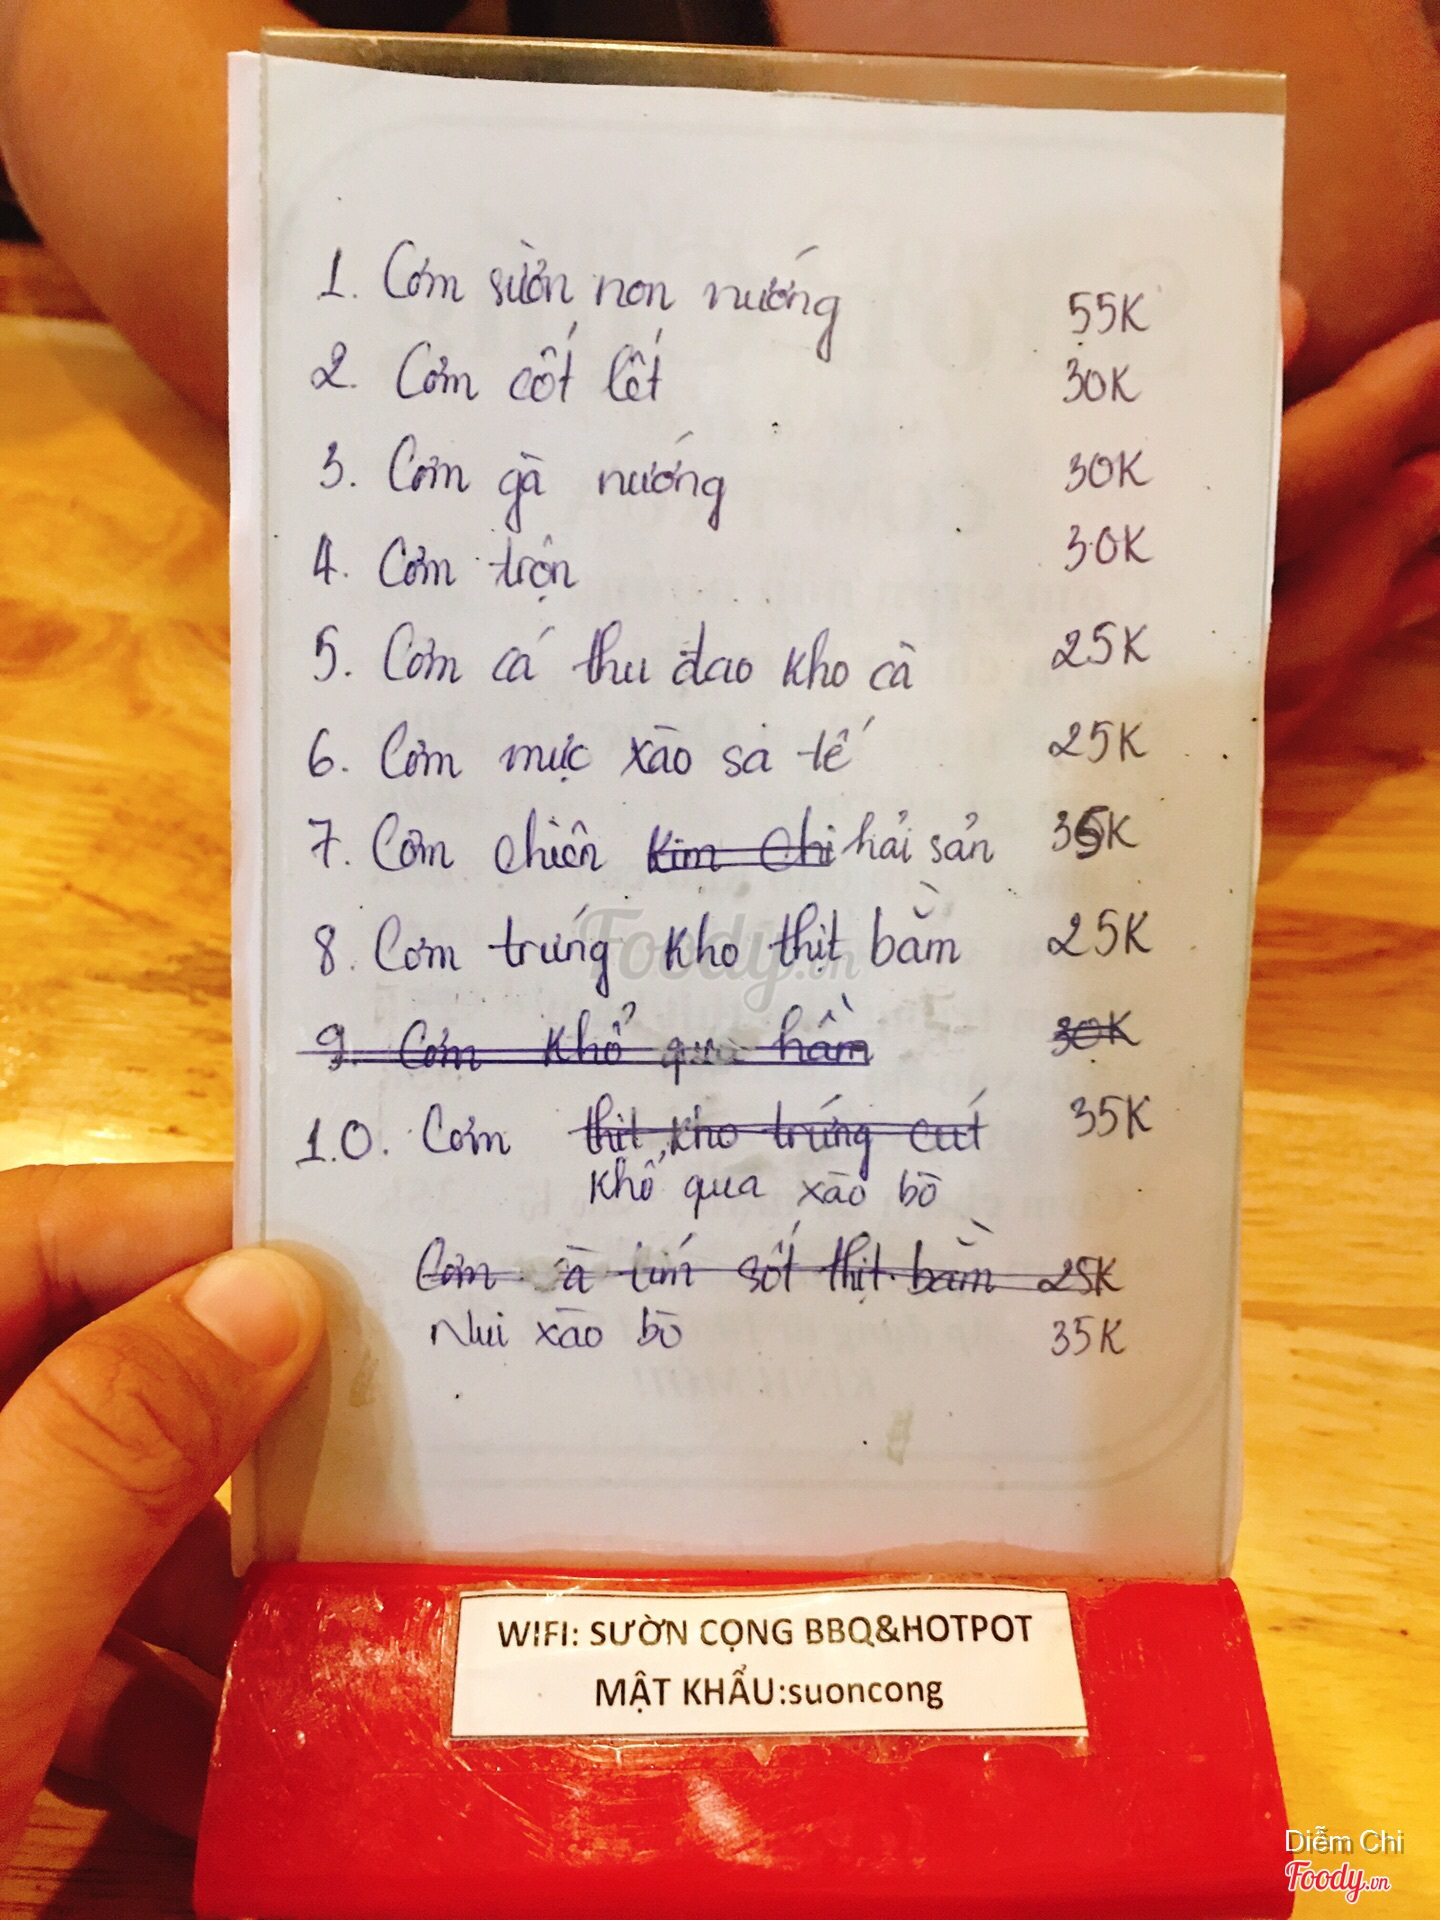 1. Cơm sườn non nướng 55K
2. Cơm cốt lết 30K
3. Cơm gà nướng 30K
4. Cơm trộn 30K
5. Cơm cá thu đao kho cà 25K
6. Cơm mực xào sa tế 25K
7. Cơm chiên Kim Chi hải sản 35K
8. Cơm trứng kho thịt bằm 25K
9. Cơm khổ qua hầm 30K
10. Cơm thịt kho trứng cút 35K
khổ qua xào bò
Cơm cà tím sốt thịt bằm 25K
Nui xào bò 35K
Foody.vn
WIFI: SƯỜN CỌNG BBQ&HOTPOT
MẬT KHẨU:suoncong
Diễm Chi
Foody.vn